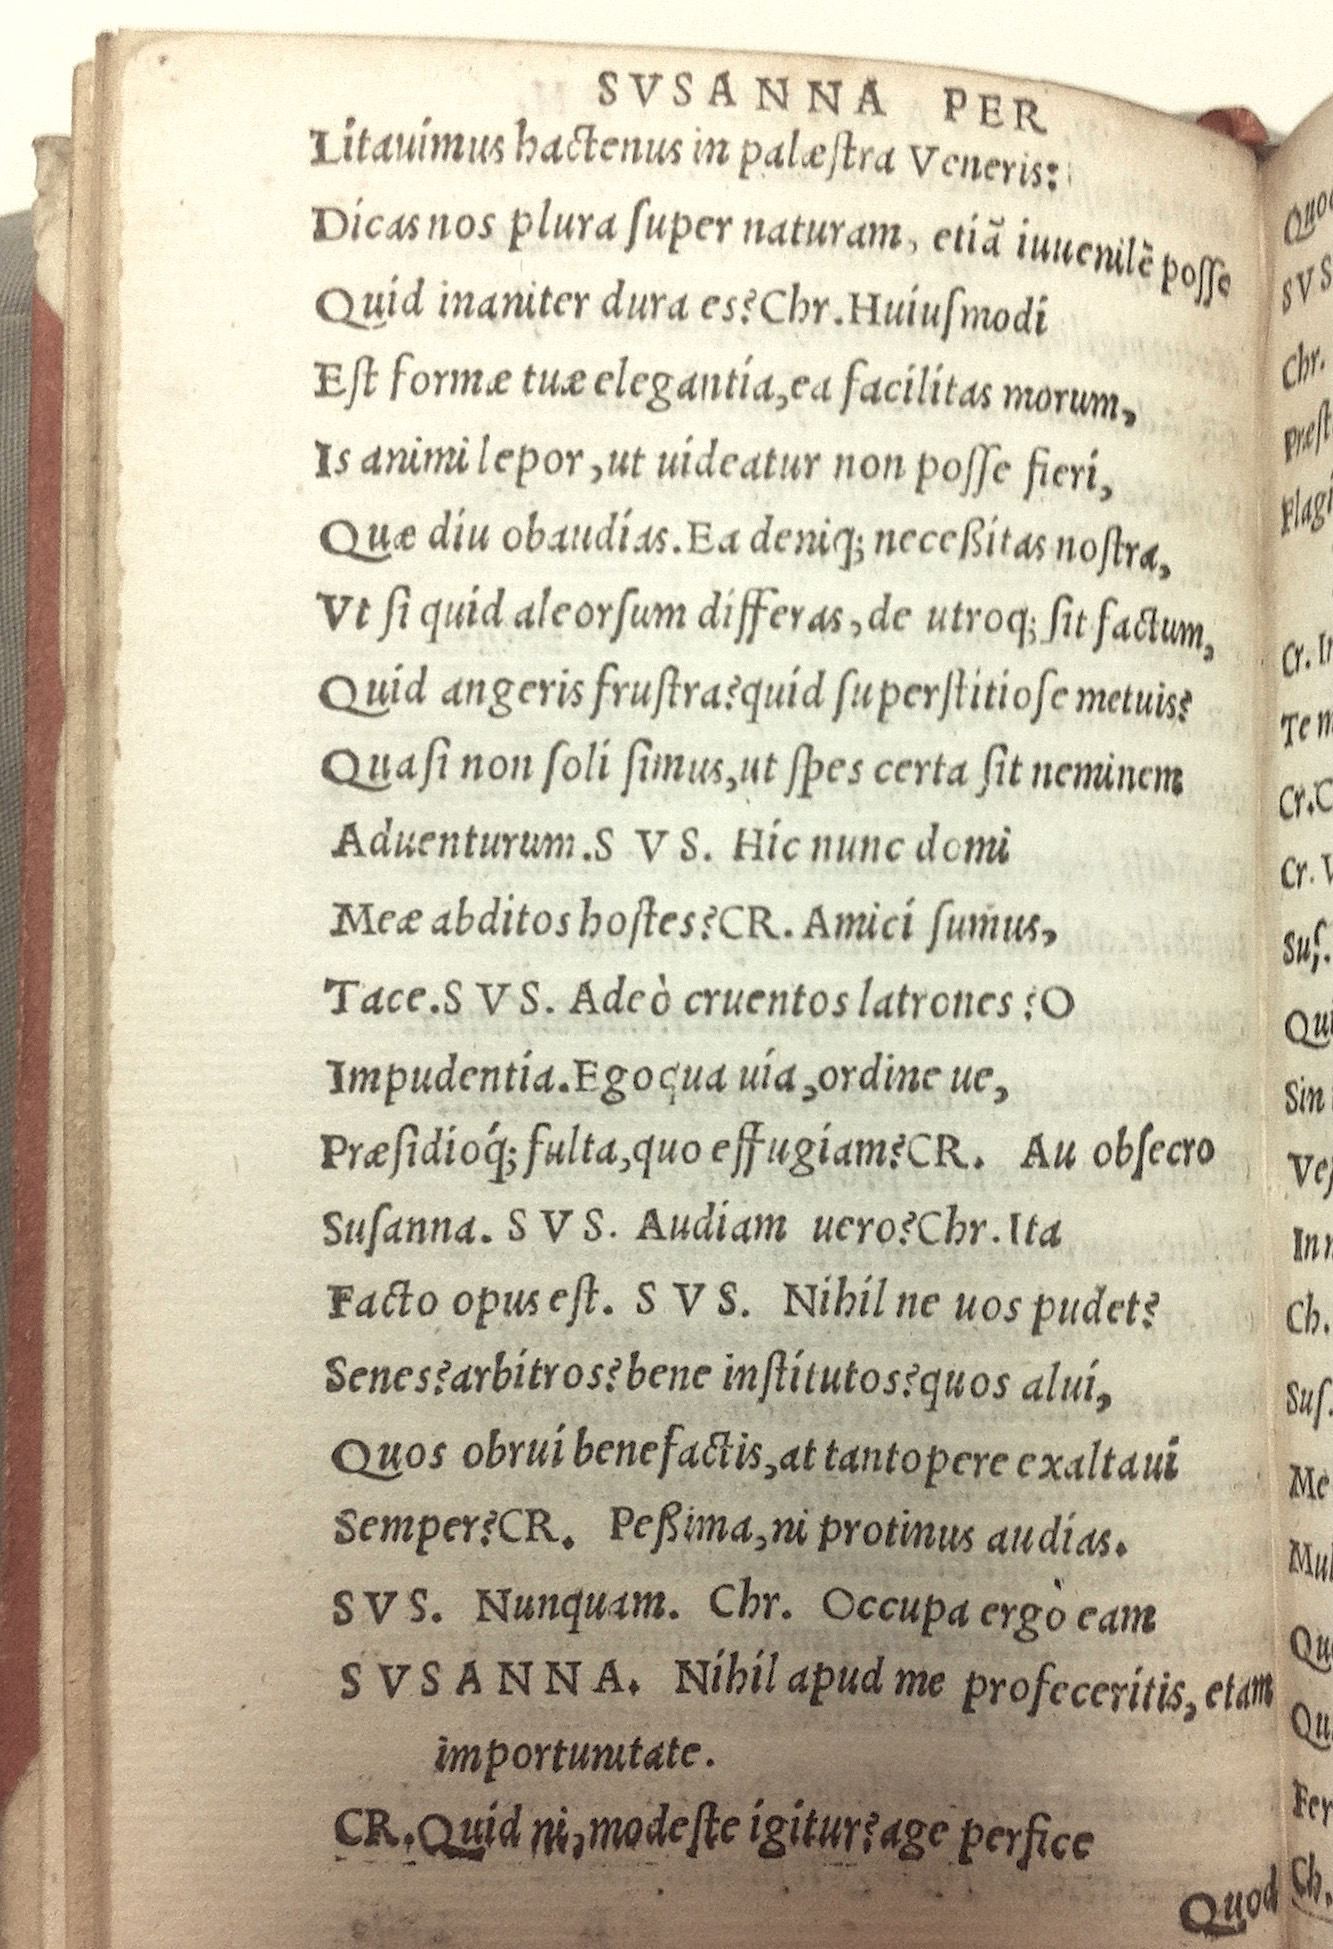 SVSANNA PER
Litauimus hactenus in palæſtra Veneris:
Dicas nos plura ſuper naturam, etiã iuuenilẽ poſſe
Quid inaniter dura es? Chr. Huiuſmodi
Eſt formæ tuæ elegantia, ea facilitas morum,
Is animi lepor, ut uideatur non poſſe fieri,
Quæ diu obaudias. Ea deniq; neceßitas noſtra,
Vt ſi quid aleorſum differas, de utroq; ſit factum,
Quid angeris fruſtra? quid ſuperſtitioſe metuis?
Quaſi non ſoli ſimus, ut ſpes certa ſit neminem
Aduenturum. SVS. Hic nunc domi
Meæ abditos hoſtes? CR. Amici ſum̃us,
Tace. SVS. Adeò cruentos latrones? O
Impudentia. Ego qua uia, ordine ue,
Præſidioq́; fulta, quo effugiam? CR. Au obſecro
Suſanna. SVS. Audiam uero? Chr. Ita
Facto opus eſt. SVS. Nihil ne uos pudet?
Senes? arbitros? bene inſtitutos? quos alui,
Quos obrui benefactis, at tantopere exaltaui
Semper? CR. Peßima, ni protinus audias.
SVS. Nunquam. Chr. Occupa ergò eam
SVSANNA. Nihil apud me profeceritis, etam
importunitate.
CR. Quid ni, modeſte igitur? age perfice
Quod
SVS
Chr.
Præſt
Plagi
Cr. In
Te m
Cr. C
Cr. V
Suſ.
Qui
Sin
Veſ
In n
Ch.
Suſ.
Me
Mul
Que
Qu
Fer
Ch.